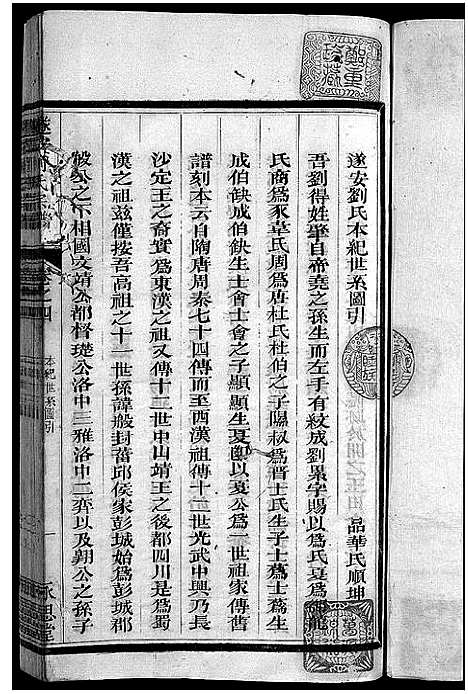 遂安劉氏本紀世系圖引
品華氏順坤
吾劉得姓肇自帝堯之孫生而左手有紋成劉累字賜以爲氏夏爲御龍
氏商爲豕韋氏周爲唐杜氏杜伯之子隰叔爲晋士氏生子士蒍士蒍生
成伯缺成伯缺生士會士會之子顯顯生夏陽以夏公爲一世祖家傳舊
譜刻本云自隋唐周秦七十四傳而至西漢祖傳十二世光武中興乃長
沙定王之裔實爲東漢之祖又傳十三世中山靖王之後都四川是爲蜀
漢之祖兹僅按吾高祖之十一世孫諱般封菑邱侯家彭城始爲彭城郡
彼公之下相國文靖公都督璴公洛中三雅洛中二弈以及翺公之孫子
遂安劉氏宗譜
卷之四
本紀世系圖引
一
永思堂